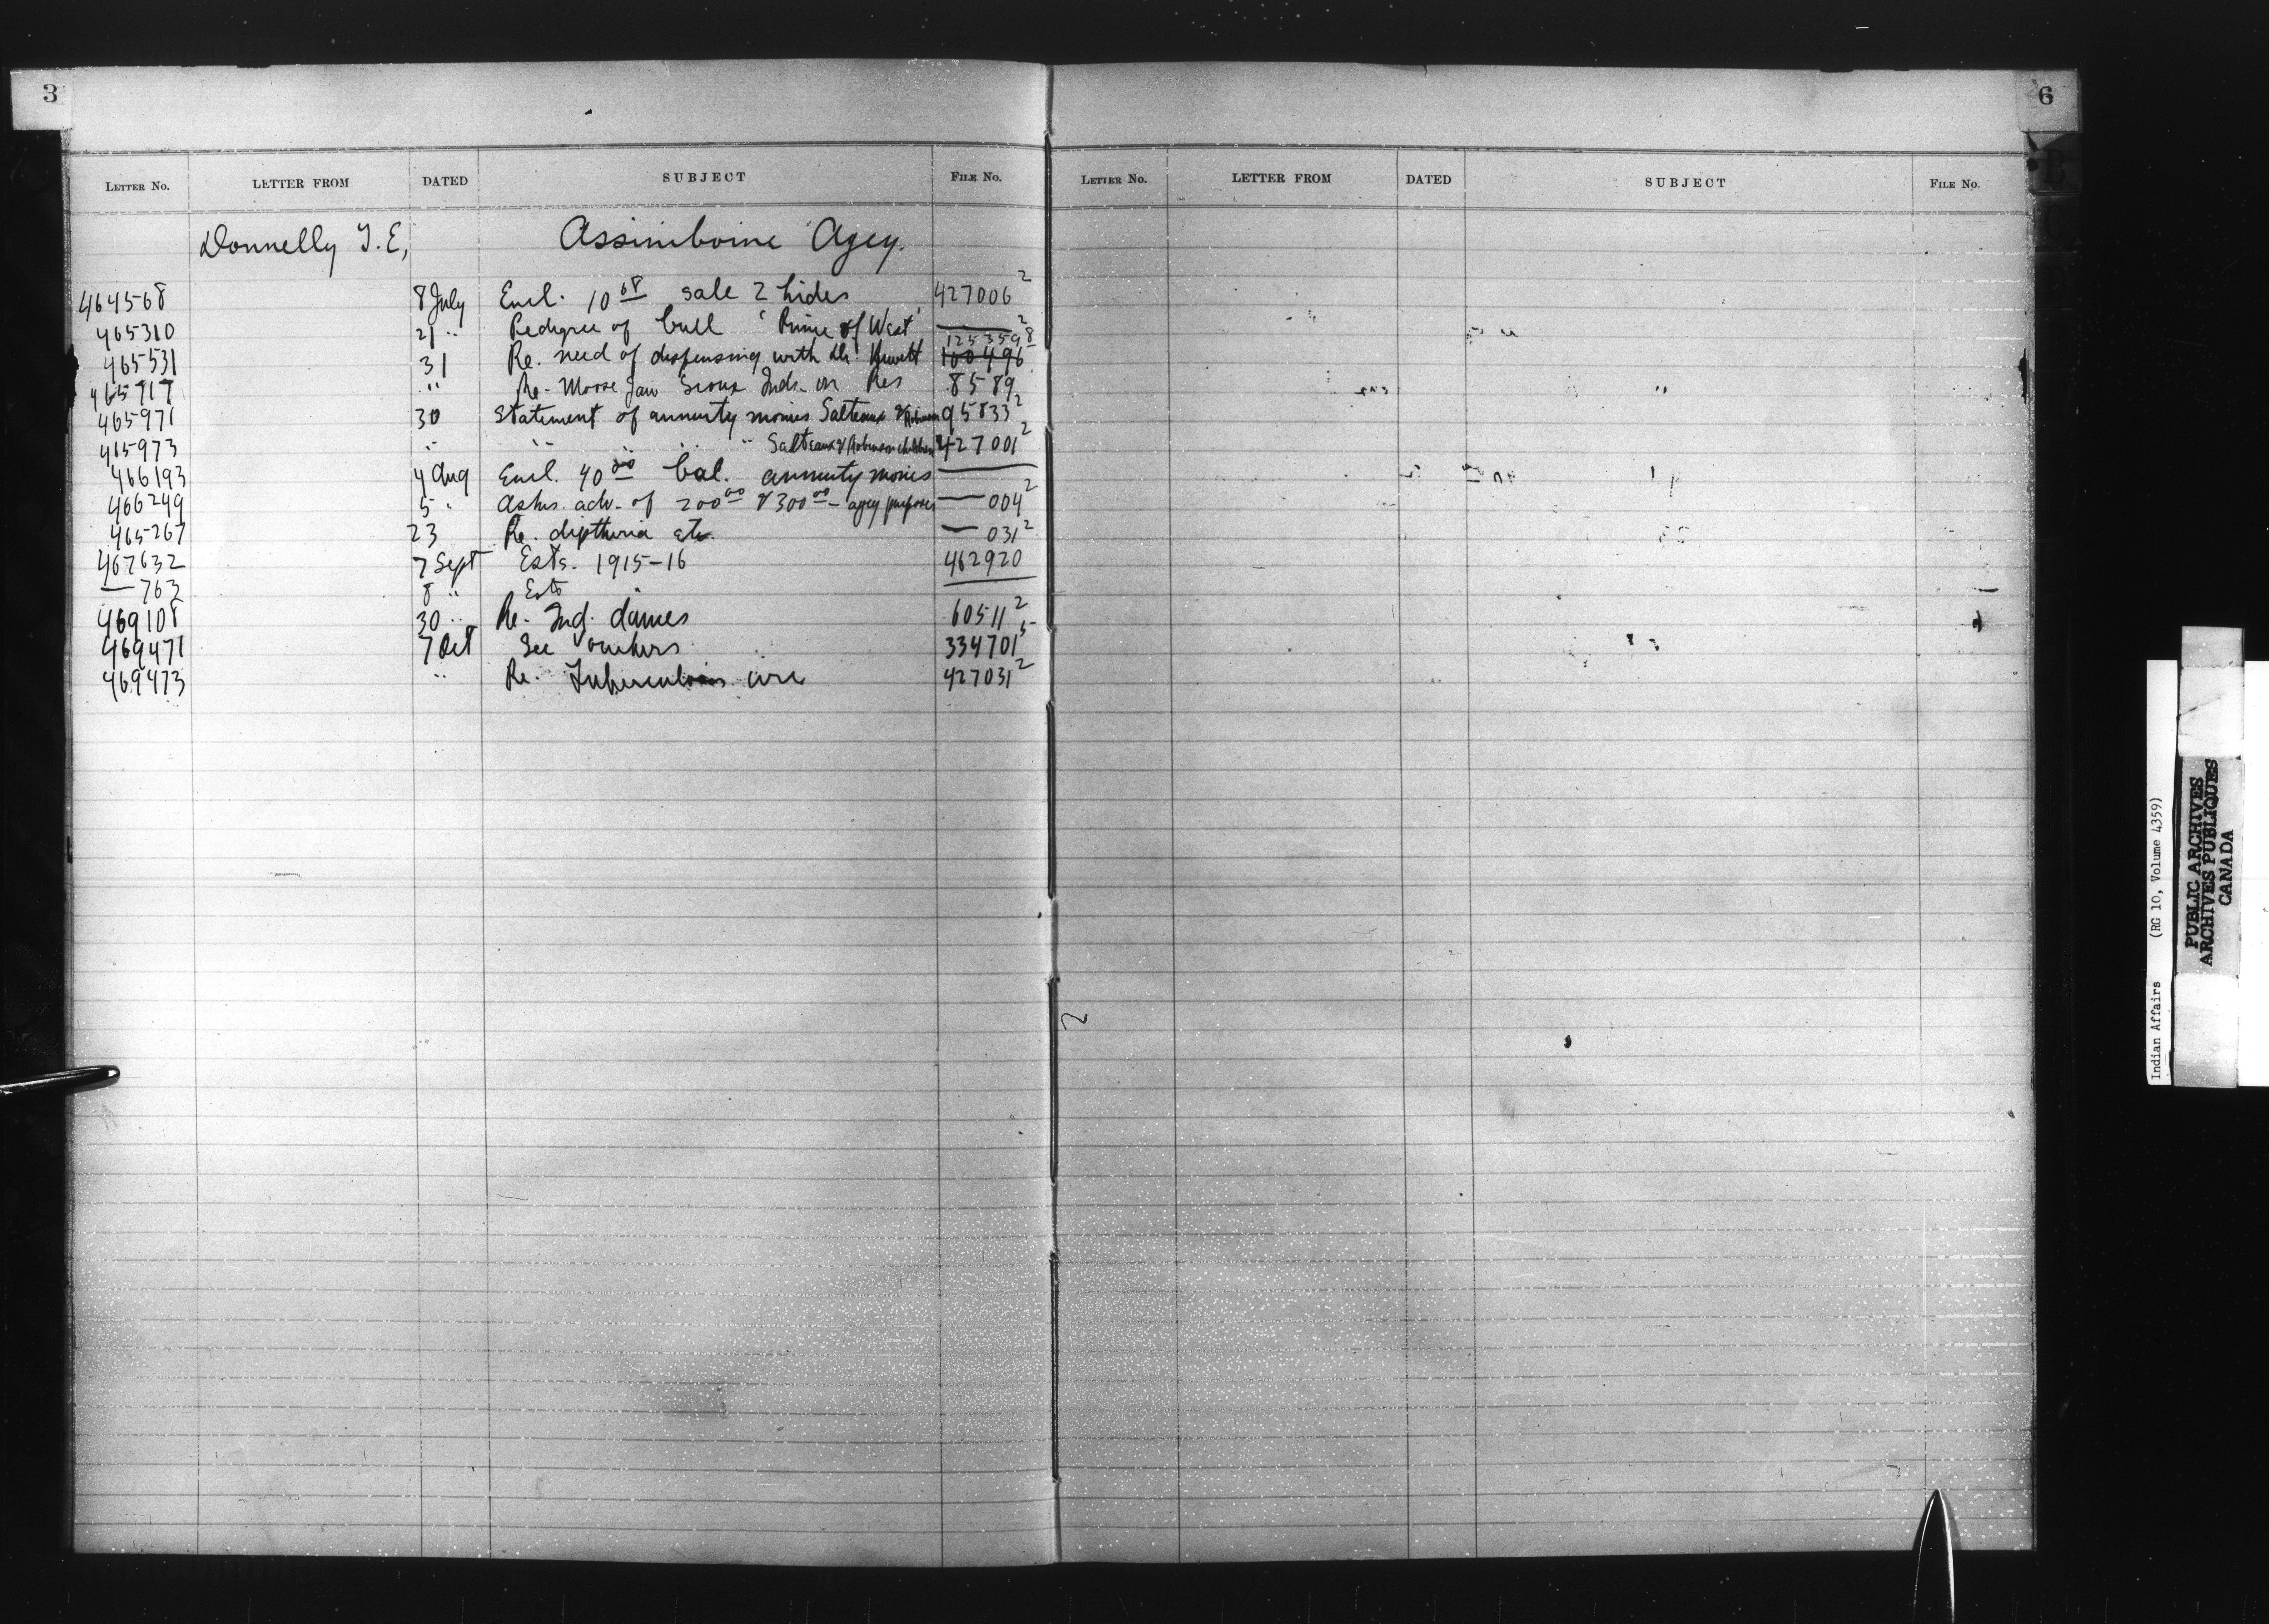 3
6
LETTER No. LETTER FROM DATED SUBJECT FILE No.
LETTER No. LETTER FROM DATED SUBJECT FILE No.
Donnelly T. E, Assiniboine Agcy.
464568 8 July Encl. 10 68 sale 2 hides 427006 2
465310 21 " Pedigree of bull 'Prince of West' — 2
125359 8
465531 31 Re. need of dispensing with Dr. 100496
465717 " Re. Moose Jaw Sioux Inds. on Res 8589
465971 30 Statement of annuity monies Salteaux & Robinson 95833 2
465973 " " " " Salteaux & Robinson children 427001 2
466193 4 Aug Encl. 40 00 bal. annuity monies —
466249 5 " Asks. adv. of 200 00 & 300 00 - agcy purposes — 004 2
465267 23 Re. diptheria etc. — 031 2
467632 7 Sept Ests. 1915-16 462920
— 763 8 " Ests —
469108 30 " Re. Ind. dances 60511 2
469471 7 Oct See vouchers 334701 5
469473 " Re. Tuberculosis 427031 2
2
Indian Affairs (RG 10, Volume 4359)
PUBLIC ARCHIVES
ARCHIVES PUBLIQUES
CANADA